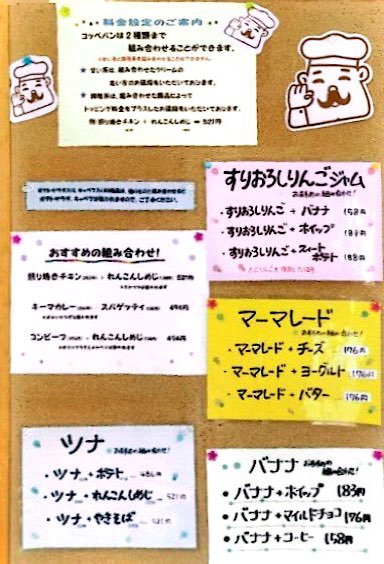 料金設定のご案内
コッペパンは2種類まで
組み合わせることができます。
★ 甘い系は、組み合わせたクリームの
高い方のお値段をいただいております。
★ 調理系は、組み合わせた商品によって
トッピング料金をプラスしたお値段をいただいております。
例 照り焼きチキン + れんこんしめじ … 521円
おすすめの組み合わせ!
照り焼きチキン + れんこんしめじ 521円
キーマカレー スパゲッティ 494円
コンビーフ + れんこんしめじ 494円
すりおろしりんごジャム
おすすめの組み合わせ!
・すりおろしりんご + バナナ 158円
・すりおろしりんご + ホイップ
・すりおろしりんご + スイートポテト
マーマレード
おすすめの組み合わせ!
・マーマレード + チーズ 176円
・マーマレード + ヨーグルト 176円
・マーマレード + バター … 176円
ツナ
おすすめの組み合わせ!
・ツナ + ポテト
・ツナ + れんこんしめじ … 521円
・ツナ + やきそば … 521円
バナナ
おすすめの組み合わせ!
・バナナ + ホイップ 183円
・バナナ + マイルドチョコ 176円
・バナナ + コーヒー 158円